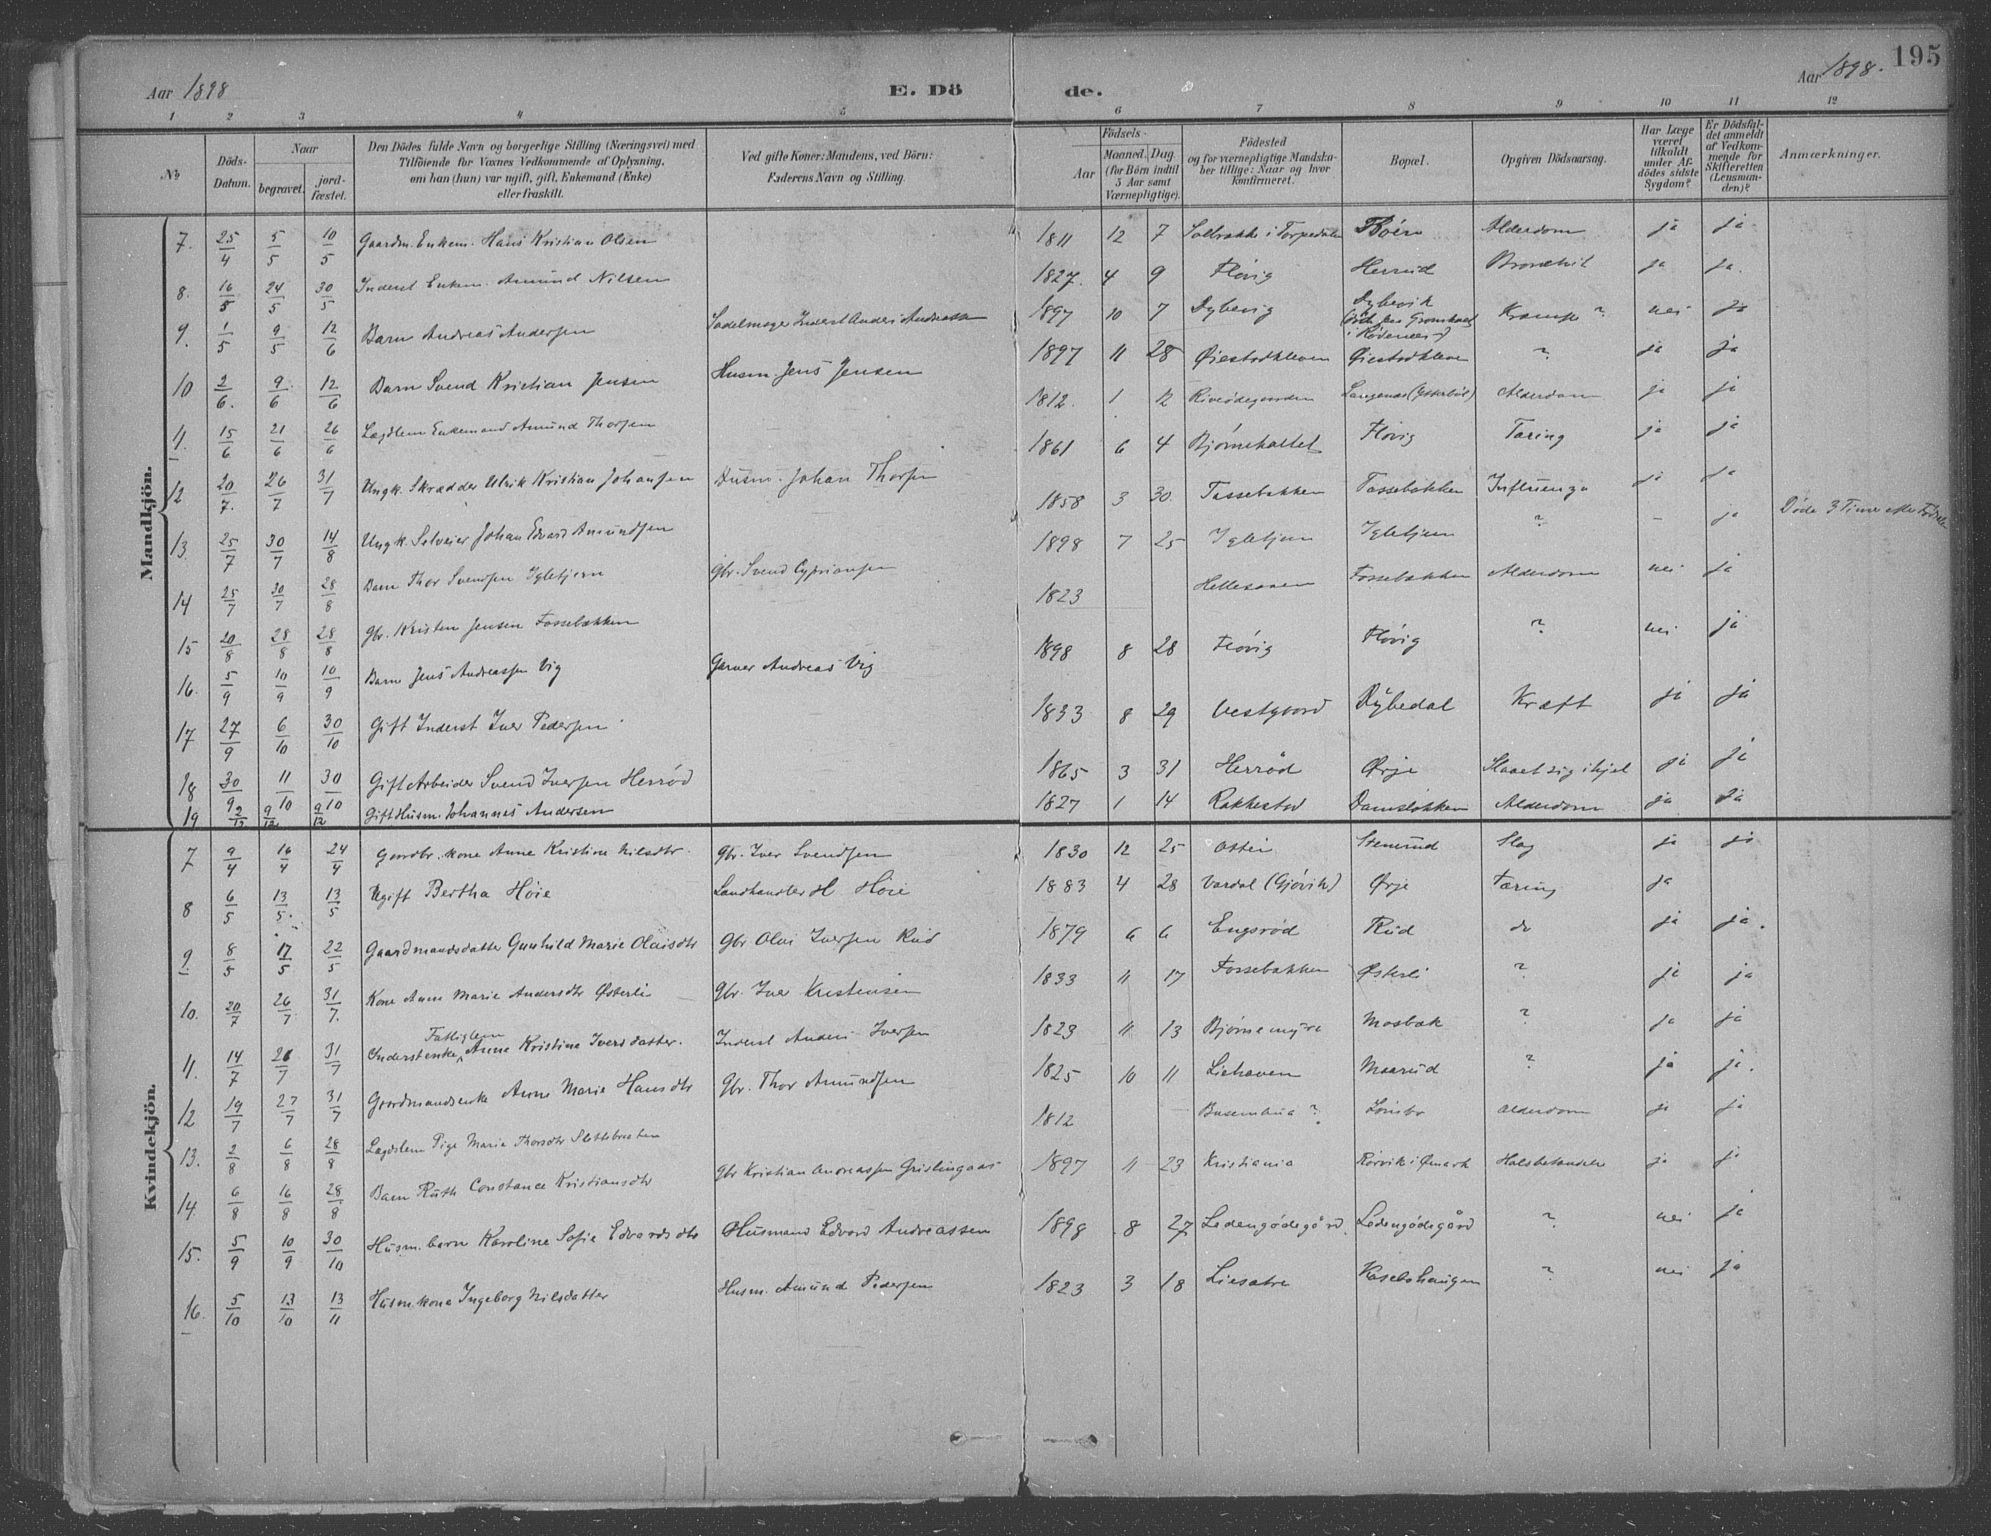 Aar 1898 E. Dö de. Aar 1898. 195
1 2 3 4 5 6 7 8 9 10 11 12
No
Döds-Datum.
Naar
begravet.
jord-fæstet.
Den Dödes fulde Navn og borgerlige Stilling (Næringsvei) med
Tilföiende for Voxnes Vedkommende af Oplysning,
om han (hun) var ugift, gift, Enkemand (Enke)
eller fraskilt.
Ved gifte Koner: Mandens, ved Börn:
Faderens Navn og Stilling.
Födsels-
Aar
Maaned. Dag
(for Börn indtil
5 Aar samt
Værnepligtige).
Födested
og for værnepligtige Mandska-
ber tillige: Naar og hvor
konfirmeret.
Bopæl.
Opgiven Dödsaarsag.
Har Læge
været
tilkaldt
under Af-
dödes sidste
Sygdom?
Er Dödsfal-
det anmeldt
af Vedkom-
mende for
Skifteretten
(Lensman-
den)?
Anmærkninger.
Mandkjön.
7. 25/4 5/5 10/5 Gaardm. Enkem. Hans Kristian Olsen 1811 12 7 Alderdom ja ja
8. 16/5 24/5 30/5 Inderst Enkem. Amund Nilsen 1827. 4 9 Fløvig Herrud ja ja.
9. 1/5 9/5 12/6 Barn Andreas Andersen Sadelmager Inderst Anders Andreassen 1897 10 7 Dybevig Dybevik Krampe ? nei ja
i Rødenes)
10 2/6. 9/6 12/6 Barn Svend Kristian Jensen Husm. Jens Jensen 1897 11 28 Øiestadkleven Øiestadkleven ? ja ja
11. 15/6 21/6 26/6 Lægdlem Enkemand Amund Thorsen 1812. 1 12 Alderdom ja ja
12 20/7. 26/7 31/7 Ungk. Skrædder Ulrik Kristian Johansen Husm. Johan Thorsen 1861 6 4 Fløvig Tæring ja ja
13. 25/7 30/7 14/8 Ungk. Selveier Johan Edvard Amundsen 1858 3 30 Fossebækken Fossebækken Influenza ja ja
14 25/7 30/7 28/8 Barn Thor Svendsen Igletjern Gbr. Svend Cypriansen 1898 7 25 Igletjern Igletjern ? - ja Døde 3 Timer efter Fødselen
15 20/8 28/8 28/8 Gbr. Kristen Jensen Fossebækken 1823 Fossebækken Alderdom nei ja
16. 5/9 10/9 10/9 Barn Jens Andreassen Vig Garver Andreas Vig 1898 8 28 Fløvig Fløvig ? nei ja
17 27/9 6/10 30/10 Gift Inderst Iver Pedersen 1833 8 29 Vestgaard Dybedal Kræft ja ja
18 30/9 11/10 30/10 Gift Arbeider Svend Iversen Herrød 1865 3 31 Herrød Ørje Slaaet sig ihjel ja ja
19 2/12 9/12 9/12 Gift Husm. Johannes Andersen 1827 1 14 Rakkestad Damsløkken Alderdom ja ja
Kvindekjön.
7 9/4 16/4 24/4 Gaardbr. kone Anne Kristine Nilsdtr. Gbr. Iver Svendsen 1830 12 25 Stenerud Slag ja ja
8 6/5 13/5. 13/5 Ugift Bertha Høie Landhandler H Høie 1883 4 28 Vardal (Gjøvik) Ørje Tæring ja
9. 8/5 17/5 22/5 Gaardmandsdatter Gunhild Marie Olaisdtr Gbr Olai Iversen Rud 1879 6 6 Engsrød Rud do ja ja.
10. 20/7 26/7 31/7. Kone Anne Marie Andersdtr Østerli Gbr. Iver Kristensen 1833 11 17 Fossebækken Østerli ? ja ja
Fattiglem
11. 14/7 26/7 31/7 Inderstenke Anne Kristine Iversdatter. Inderst Anders Iversen 1823 11 13 Bjørnemyra Mosbæk ? ja ja
12 19/7 27/7 31/7 Gaardmandsenke Anne Marie Hansdtr Gbr. Thor Amundsen 1825 10 11 Liehaven Maarud ? ja ja.
13. 2/8 6/8 28/8 Lægdslem Pige Marie Thorsdtr 1812 Alderdom ja ja
14. 6/8 16/8 28/8 Barn Ruth Constance Kristiansdtr Gbr Kristian Andreassen Grislingaas 1897 11 23 Kristiania Rørvik i Ømark Halsbetændelse ja ja
15. 5/9 10/9 30/10 Husm. barn Karoline Sofie Edvardsdtr Husmand Edvard Andreassen 1898 8 27 Lødengødegård Lødengødegård ? nei ja
16. 5/10 13/10 13/11 Husm. kone Ingeborg Nilsdatter Husm. Amund Pedersen 1823 3 18 Liesætre Kasebohaugen ? nei ja